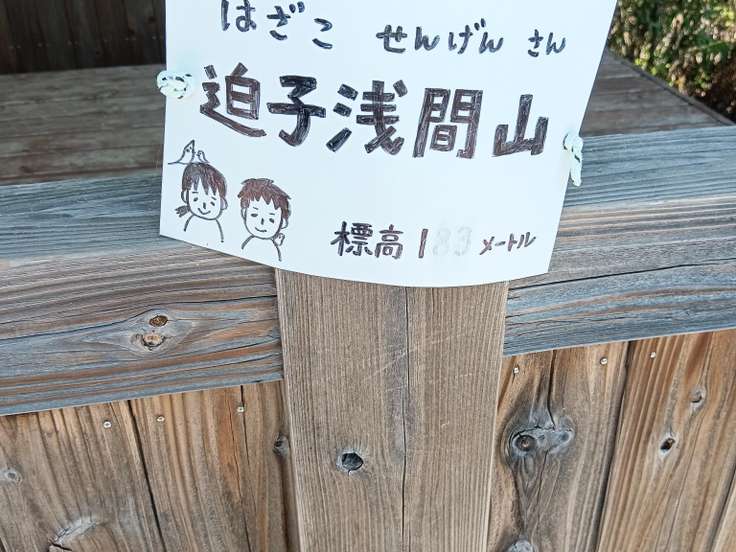 はざこ せんげん さん
迫子浅間山
標高183メートル